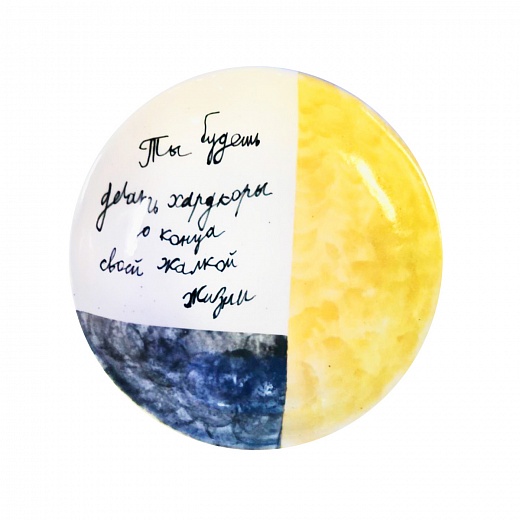 Ты будешь
делать хардкоры
о конца
своей жалкой
жизни